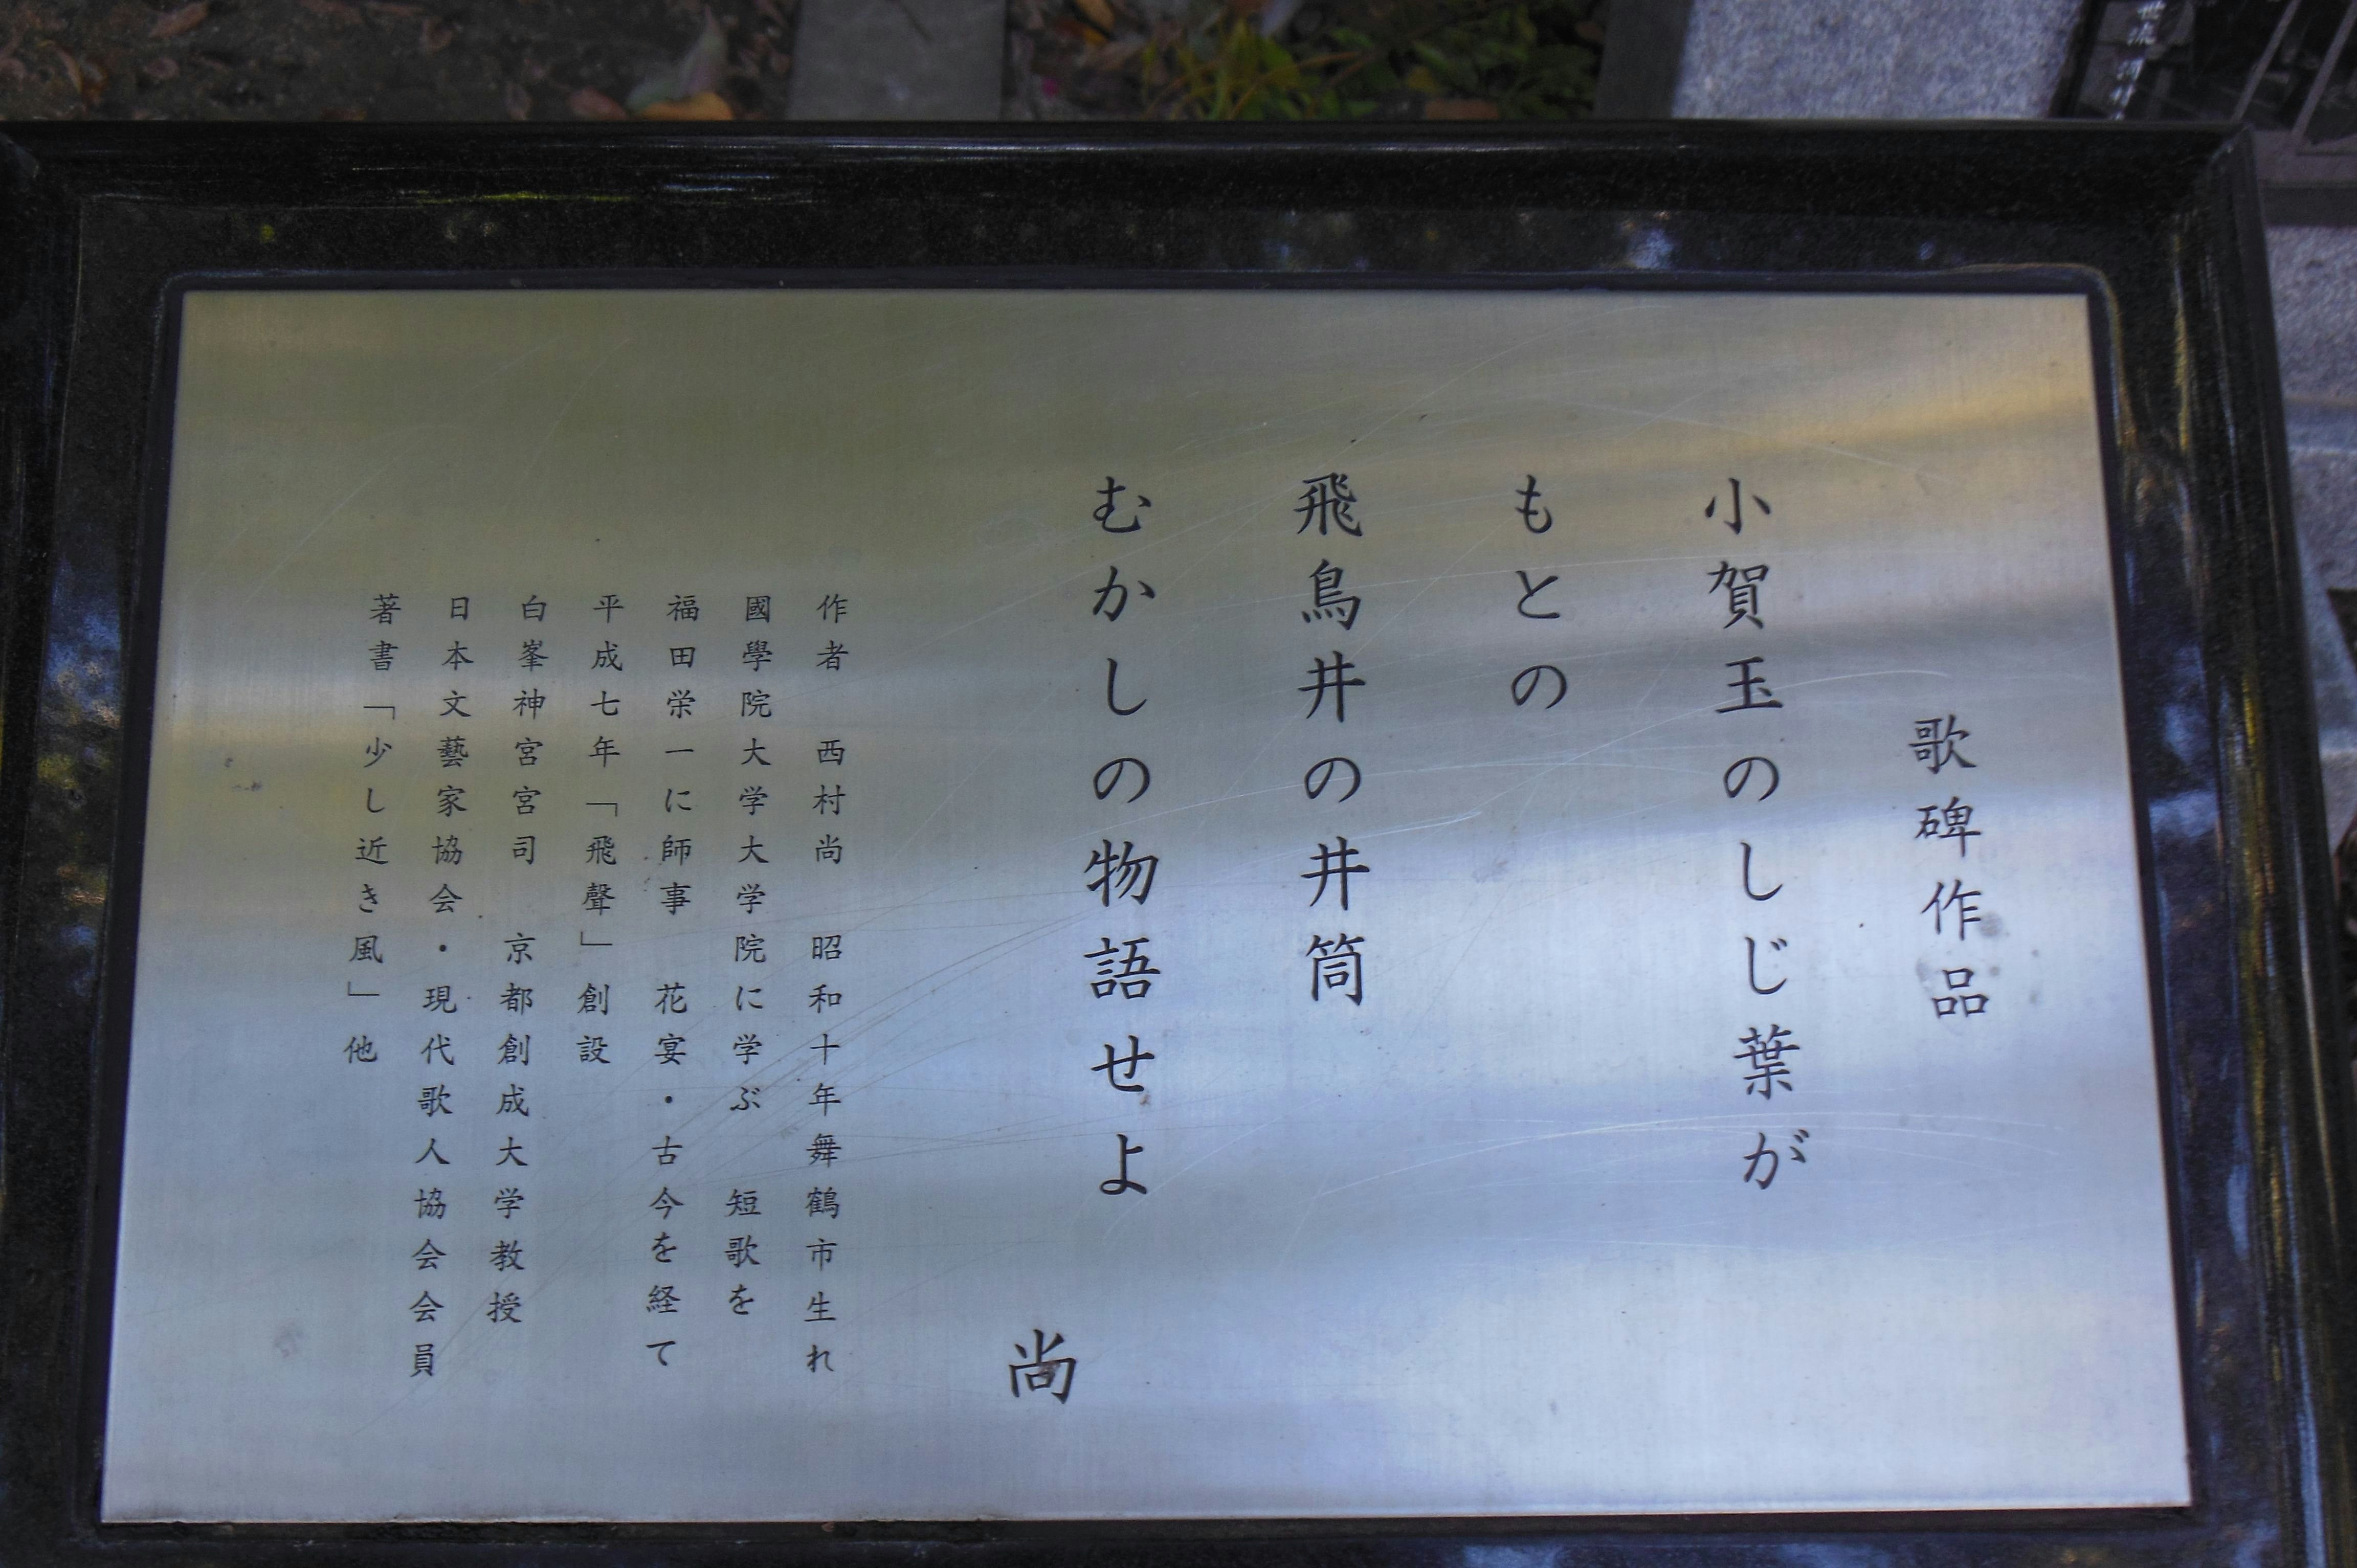 歌碑作品
小賀玉のしじ葉が
もとの
飛鳥井の井筒
むかしの物語せよ
尚
作者　西村尚　昭和十年舞鶴市生れ
國學院大学大学院に学ぶ　短歌を
福田栄一に師事　花宴・古今を経て
平成七年「飛聲」創設
白峯神宮宮司　京都創成大学教授
日本文藝家協会・現代歌人協会会員
著書「少し近き風」他